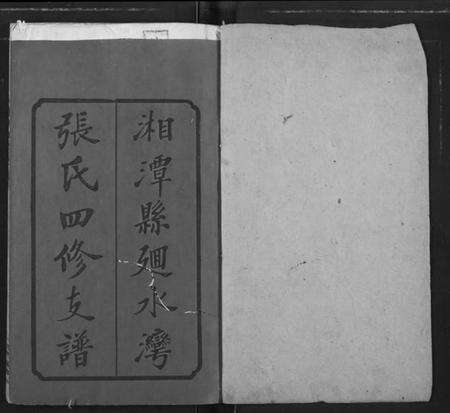 湘潭縣廻水灣
張氏四修支譜